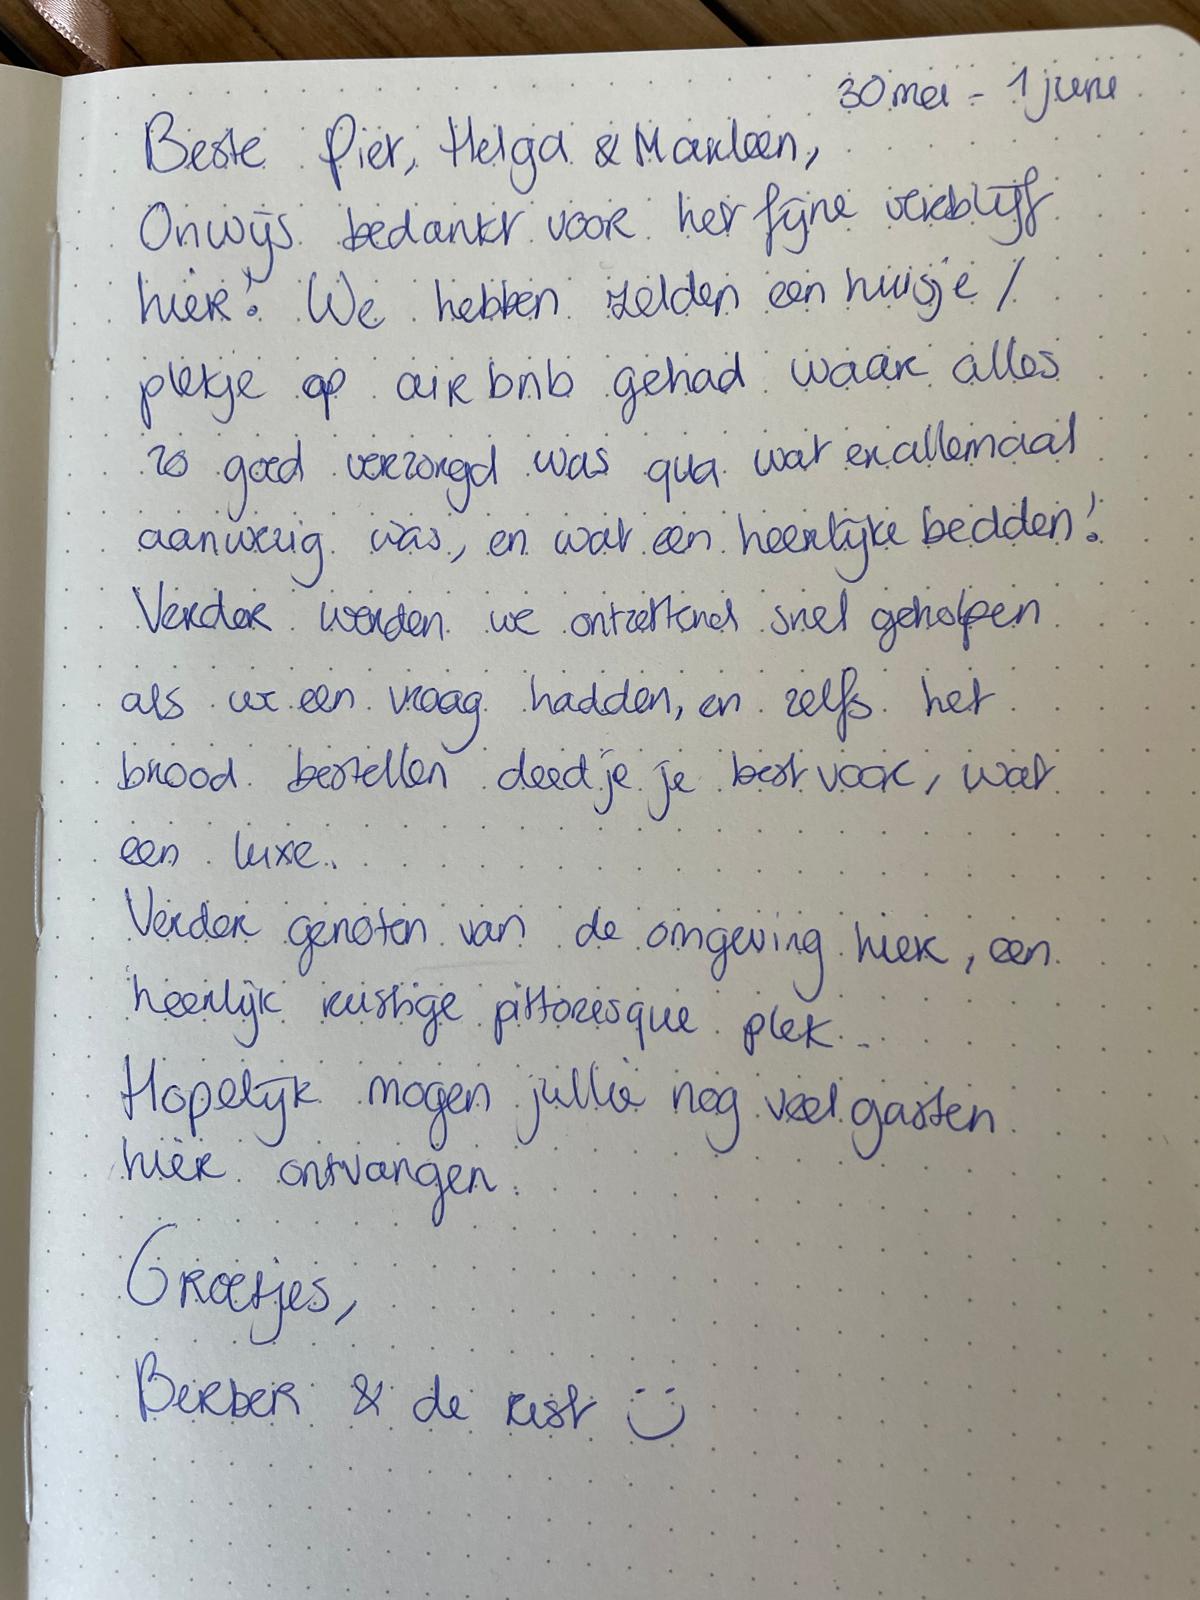 30 mei - 1 june
Beste Pier, Helga & Marleen,
Onwijs bedankt voor het fijne verblijf
hier! We hebben zelden een huisje /
plekje op airbnb gehad waar alles
zo goed verzorgd was qua wat er allemaal
aanwezig was, en wat een heerlijke bedden!
Verder werden we ontzettend snel geholpen
als we een vraag hadden, en zelfs het
brood bestellen deed je je best voor, wat
een luxe.
Verder genoten van de omgeving hier, een
heerlijk rustige pittoresque plek.
Hopelijk mogen jullie nog veel gasten
hier ontvangen.
Groetjes,
Berber & de rest :)